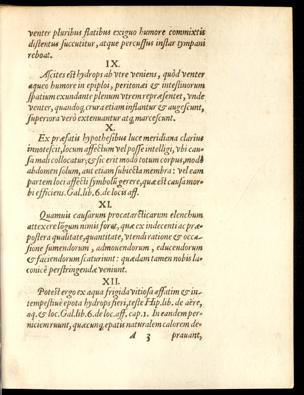 venter pluribus flatibus exiguo humore commixtis
distentus succutitur, atque percussus instar tympani
reboat.
IX.
Ascites est hydrops ab vtre veniens, quòd venter
aqueo humore in epiploi, peritonæi & intestinorum
spatium exundante plenum vtrem repræsentet, vnde
venter, quandoq; crura etiam inflantur & augescunt,
superiora verò extenuantur atq; marcescunt.
X.
Ex præfatis hypothesibus luce meridiana clarius
innotescit, locum affectum vel posse intelligi, vbi cau-
sa mali collocatur; & sic erit modò totum corpus, modò
abdomen solum, aut etiam subiecta membra: vel eam
partem loci affecti symbolū gerere, quæ est causa mor-
bi efficiens. Gal. lib. 6. de locis aff.
XI.
Quamuis causarum procatarcticarum elenchum
attexere lōgum nimis foret, quæ ex indecenti ac præ-
postera qualitate, quantitate, vtendi ratione & occa-
sione sumendorum, admouendorum, educendorum
& faciendorum scaturiunt: quædam tamen nobis la-
conicè perstringendæ veniunt.
XII.
Potest ergo ex aqua frigida vitiosa affatim & in-
tempestiuè epota hydrops fieri, teste Hip. lib. de aëre,
aq. & loc. Gal. lib. 6. de loc. aff. cap. 1. In eandem per-
niciem ruunt, quæcunq; epatis naturalem calorem de-
A 3 prauant,